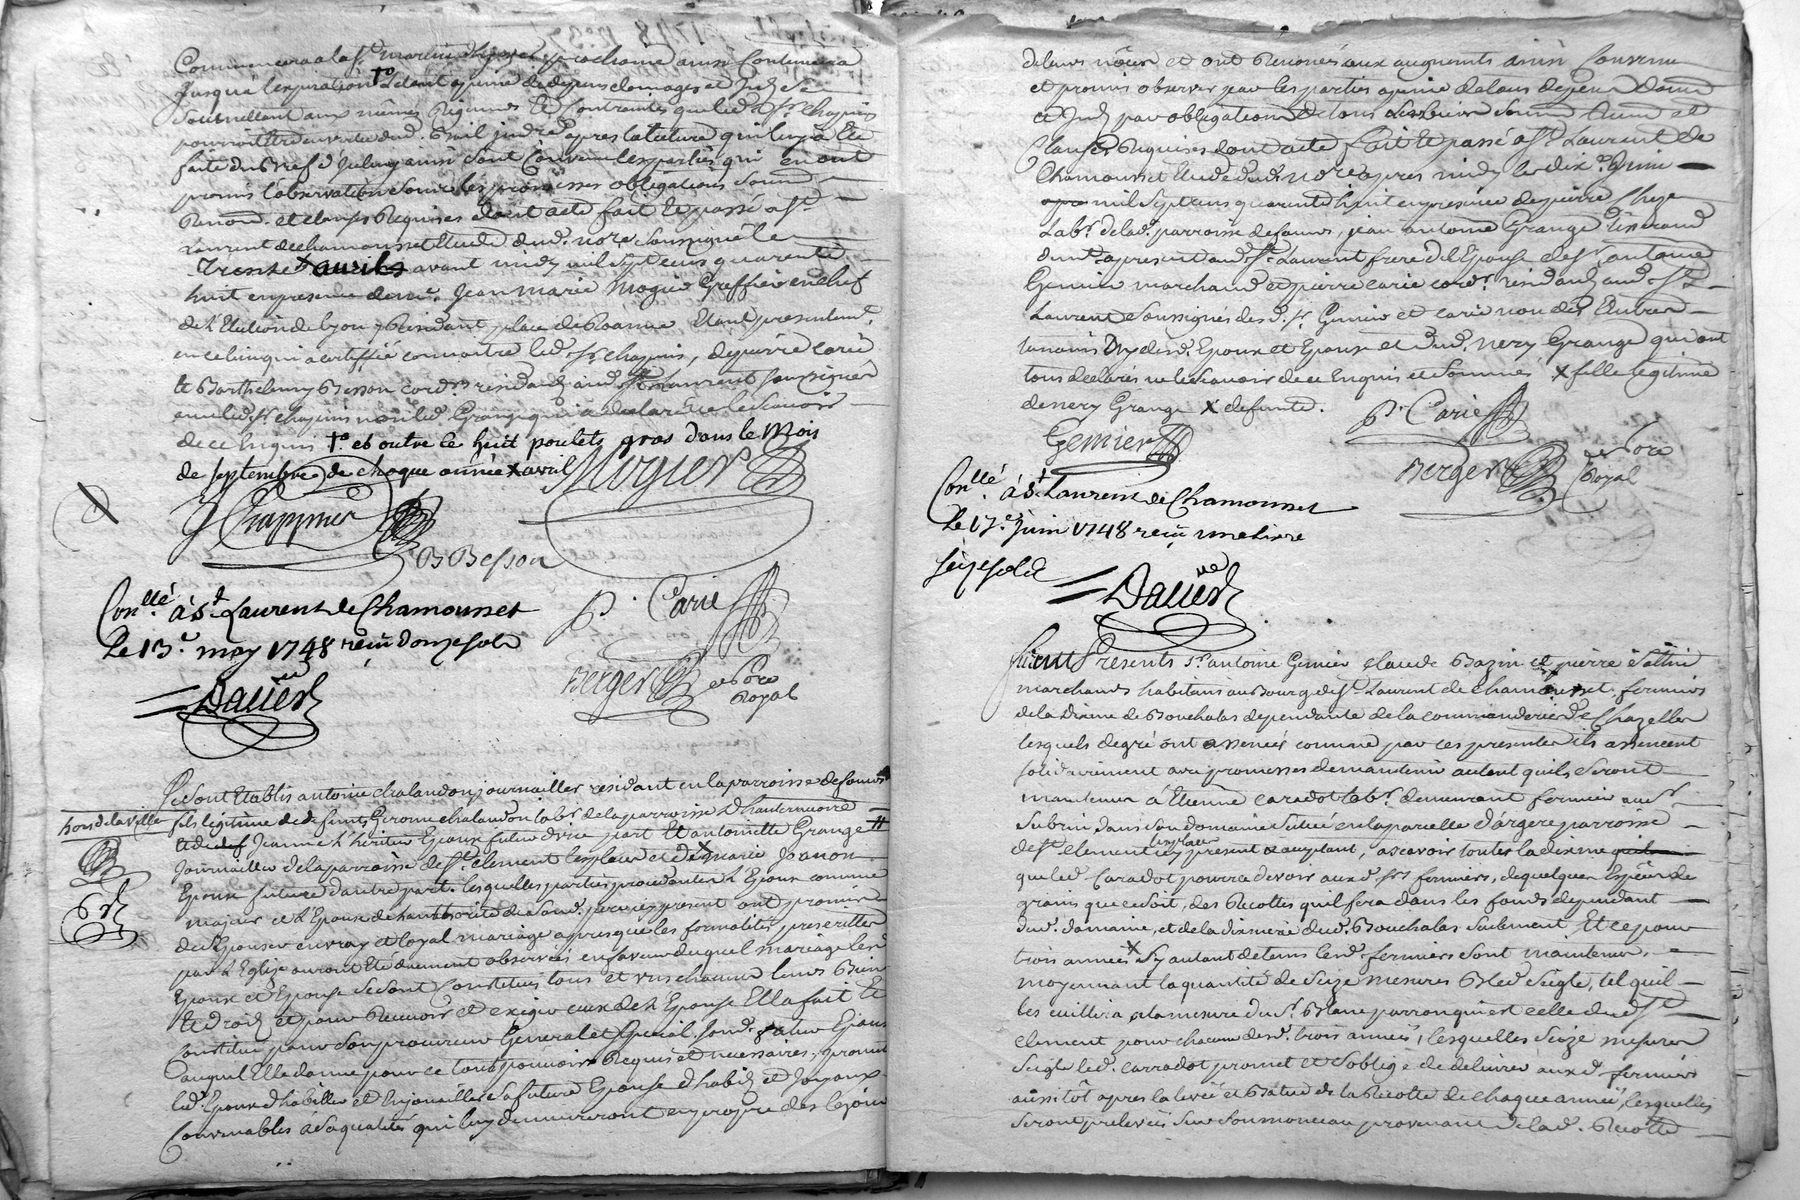 jusqu'a l'expiration
Sousmettant aux mêmes
faite du Bref d'Iceluy ainsi sont Convenu les parties qui en ont
promis l'observation sous les promesses obligations Soumd.
Renond. et clauses Requises dont acte fait et passé a St.
Laurent de chamousset Etude dud. no.re Soussigné le
Trente x avril avant midy mil Sept cens quarente
huit en presence de mr. Jean marie Mogier Greffier en chef
de l'Election de lyon y Residant place de Roanne Etant presentemt.
en ce lieu qui a certiffié connoitre led. Sr. chapuis, de pierre carié
et Barthelemy Besson cord.rs residants aud. St. Laurent soussignes
avec led. Sr. non led. Grange qui a declaré ne le Scavoir
de ce Enquis To. et outre ce huit poulets gras dans le Mois
de septembre de chaque année x avril
Mogier
B Besson
P. Carié
Con.llé à St. Laurent de Chamousset
Le 13.e may 1748 reçu douze sols
Daüer
Berger no.re Royal
hors de la ville
Se sont Etablis antoine chalandon journaillier residant en la parroisse de
fils legitime de defunts Gerome chalandon lab.r de la parroisse d'hauterivoire
et de Jeanne L'héritier Epoux futur d'une part Et antoinette Grange #
Journaillier de la parroisse de St. clement les places et de x marie
Epouse future d'autre part. lesquelles parties procedantes L'Epoux comme
majeur et L'Epouse de l'authorité de present ont promis
de s'Epouser en vray et loyal mariage apres que les formalités prescrittes
par L'Eglise auront Eté duement observées en faveur duquel mariage lesd.
Epoux et Epouse se sont Constitués tous et uns chacuns leurs Biens
et Droits et pour Recevoir et exiger ceux de L'Epouse Elle a fait et
Constitué pour Son procureur General et Special Sond. futur Epoux
auquel Elle donne pour ce tous pouvoirs Requis et necessaires, promet
led. Epoux d'habiller et Enjouailler Sa future Epouse d'habits et Joyaux
Convenables a Sa qualité qui luy demeureront en propre des le jour
de leurs nôces et ont Renoncés aux augments ainsi Convenu
et promis observer par les parties a peine de tous depens dom.
et Int. par obligation de tous leurs biens Soumd. Renond. et
Clauses Requises dont acte fait et passé a St. Laurent de
Chamousset Etude dud. no.re apres midy le dix
mil Sept cens quarente huit en presence de pierre
Lab.r de lad. parroisse de, jean antoine Grange
St. Laurent frere de l'Epouse de Sr. antoine
Gemier marchand et pierre carié cord.r residants aud. St.
Laurent Soussignés les d. Sr. Gemier et carié non les Autres
temoins Ny lesd. Epoux et Epouse et dud. nery Grange qui ont
tous declarés ne le Scavoir de ce Enquis et Sommés x fille legitime
de nery Grange x defunte.
Gemier
P. Carié
Berger no.re Royal
Con.llé à St. Laurent de Chamousset
Le 17.e juin 1748 reçu une livre
seize sols
Daüer
Furent Presents Sr. antoine Gemier claude Bazin et pierre
marchands habitans au Bourg de St. Laurent de Chamousset fermiers
de la Dixme de Bouchalas dependante de la commanderie de Chazelles
lesquels de gré ont assencés comme par ces presentes ils assencent
solidairement avec promesses de maintenir autant qu'ils seront
maintenus à Etienne Caradot lab.r demeurant fermier au Sr.
Subrin dans Son domaine Situé en la parcelle d'argere parroisse
de St. clement les places icy present et acceptant, a scavoir toutes la dixme
que led. Caradot pourra devoir aux d. Srs. fermiers, de quelque Espéce de
grains que ce Soit, des Recoltes qu'il fera dans les fonds dependant
dud. domaine, et de la dixmerie dud. Bouchalas Seulement Et ce pour
trois années x Sy autant de tems lesd. fermiers Sont maintenus,
moyennant la quantité de Seize mesures Bled Seigle, tel quil
les cuillira a la mesure du Sr. qui est celle dud. St.
clement pour chacune desd. trois années, lesquelles Seize mesures
Seigle led. Carradot promet et s'oblige de delivrer aux d. fermiers
aussitôt apres la levée et Batue de la Recolte de chaque année, lesquelles
Seront prelevées Sur Son monceau provenant de lad. Recolte